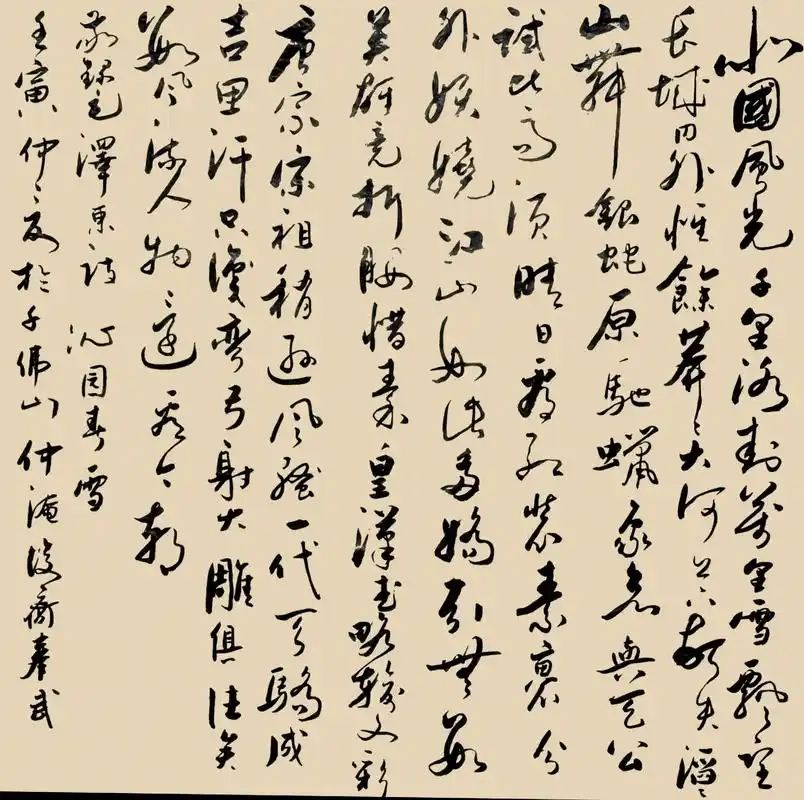 北國風光千里冰封萬里雪飄望
長城内外惟餘莽〻大河上下頓失滔〻
山舞銀蛇原馳蠟象欲與天公
試比高須晴日看紅裝素裹分
外妖嬈江山如此多嬌引無數
英雄競折腰惜秦皇漢武略輸文彩
唐宗宋祖稍遜風騷一代天驕成
吉思汗只識彎弓射大雕俱往矣
數風流人物還看今朝
敬錄毛澤東詩 沁園春雪
壬寅仲夏於千佛山仲淹後裔奉武